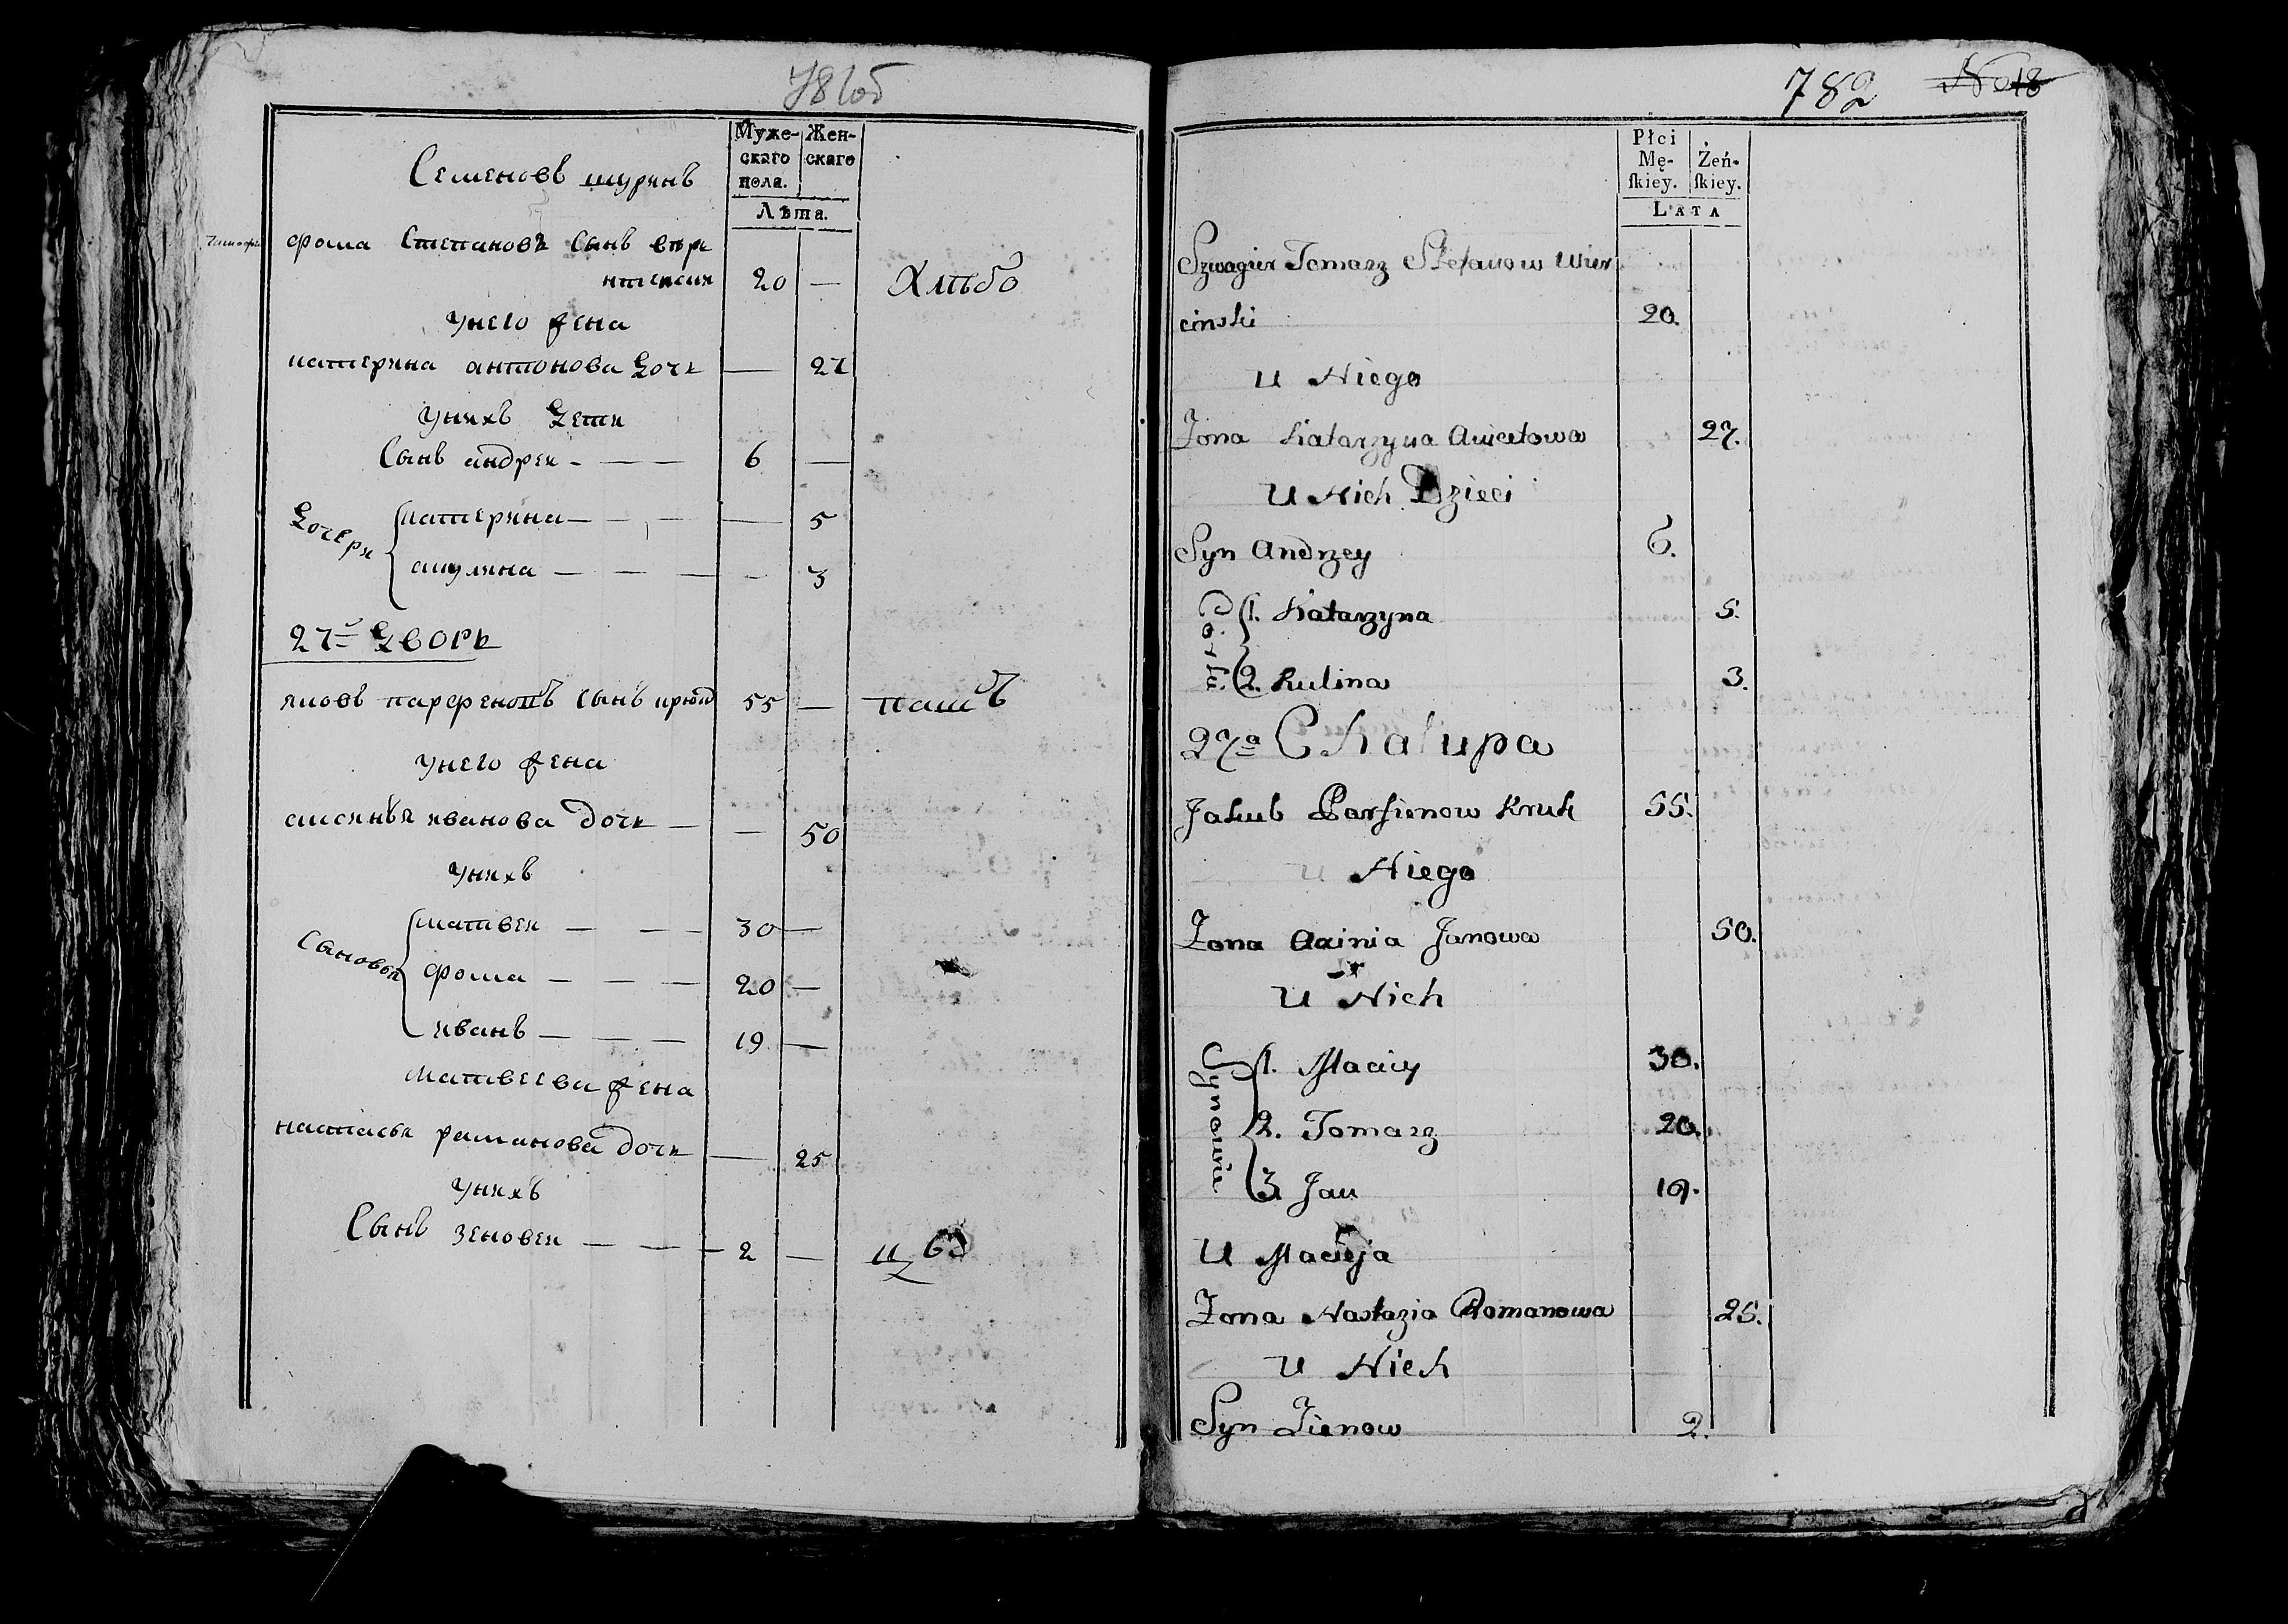 781об
Муже-
скаго
пола.
Жен-
скаго
Лѣта.
Семеновъ шуринъ
фома Степановъ Сынъ вѣри
20 — Хлѣбо
унего жена
катерина антонова дочь — 27
унихъ дети
Сынъ андреи — 6 —
Дочери
катерина — 5
акулина — 3
27й дворъ
яковъ парфеновъ Сынъ крюк 55 — паш
унего жена
аксинья иванова дочь — 50
унихъ
Сыновья
матвеи — 30 —
фома — 20 —
иванъ — 19 —
матвеева жена
настасья раманова дочь — 25
унихъ
Сынъ зеновеи — 2 —
782 No 18
Płci
Mę-
skiey.
Żeń-
skiey.
LATA
Szwagier Tomasz Stefanow Wier
cinski 20.
U Niego
Zona Katarzyna Anicetowa 27.
U Nich Dzieci
Syn Andrzey 6.
Corki
1. Katarzyna 5.
2. Kulina 3.
27a Chalupa
Jakub Parfienow Kruk 55.
U Niego
Zona Axinia Janowa 50.
U Nich
Synowie
1. Maciey 30.
2. Tomasz 20.
3. Jan 19.
U Macieja
Zona Nastazia Romanowa 25.
U Nich
Syn Zienow 2.